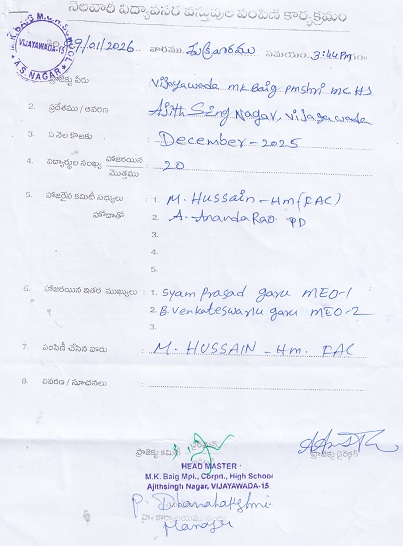 నెలవారీ విద్యావసర వస్తువుల పంపిణీ కార్యక్రమం
VIJAYAWADA-15
A.S. NAGAR
9/01/2026 వారము శుక్రవారము సమయం 3:44 Pm
ప్రాజెక్టు పేరు Vijayawada M.K Baig PMshri MC HS
2. ప్రదేశము / ఆవరణ : Ajith Sing Nagar, Vijayawada
3. ఏ నెల కొరకు : December - 2025
4. విద్యార్థుల సంఖ్య హాజరయిన / మొత్తము : 20
5. హాజరైన కమిటీ సభ్యులు : 1. M. Hussain - Hm (FAC)
హోదాతో 2. A. Ananda Rao PD
3.
4.
5.
6. హాజరయిన ఇతర ముఖ్యులు : 1. Syam Prasad garu MEO-1
2 B. Venkateswarlu garu MEO-2
3.
7. పంపిణీ చేసిన వారు : M. HUSSAIN - Hm. FAC
8. వివరణ / సూచనలు :
ప్రాజెక్టు కమిటీ
ప్రాజెక్టు డైరెక్టర్
HEAD MASTER
M.K. Baig Mpl., Corpn., High School
Ajithsingh Nagar, VIJAYAWADA-15
P. Dhanalakshmi
Manager